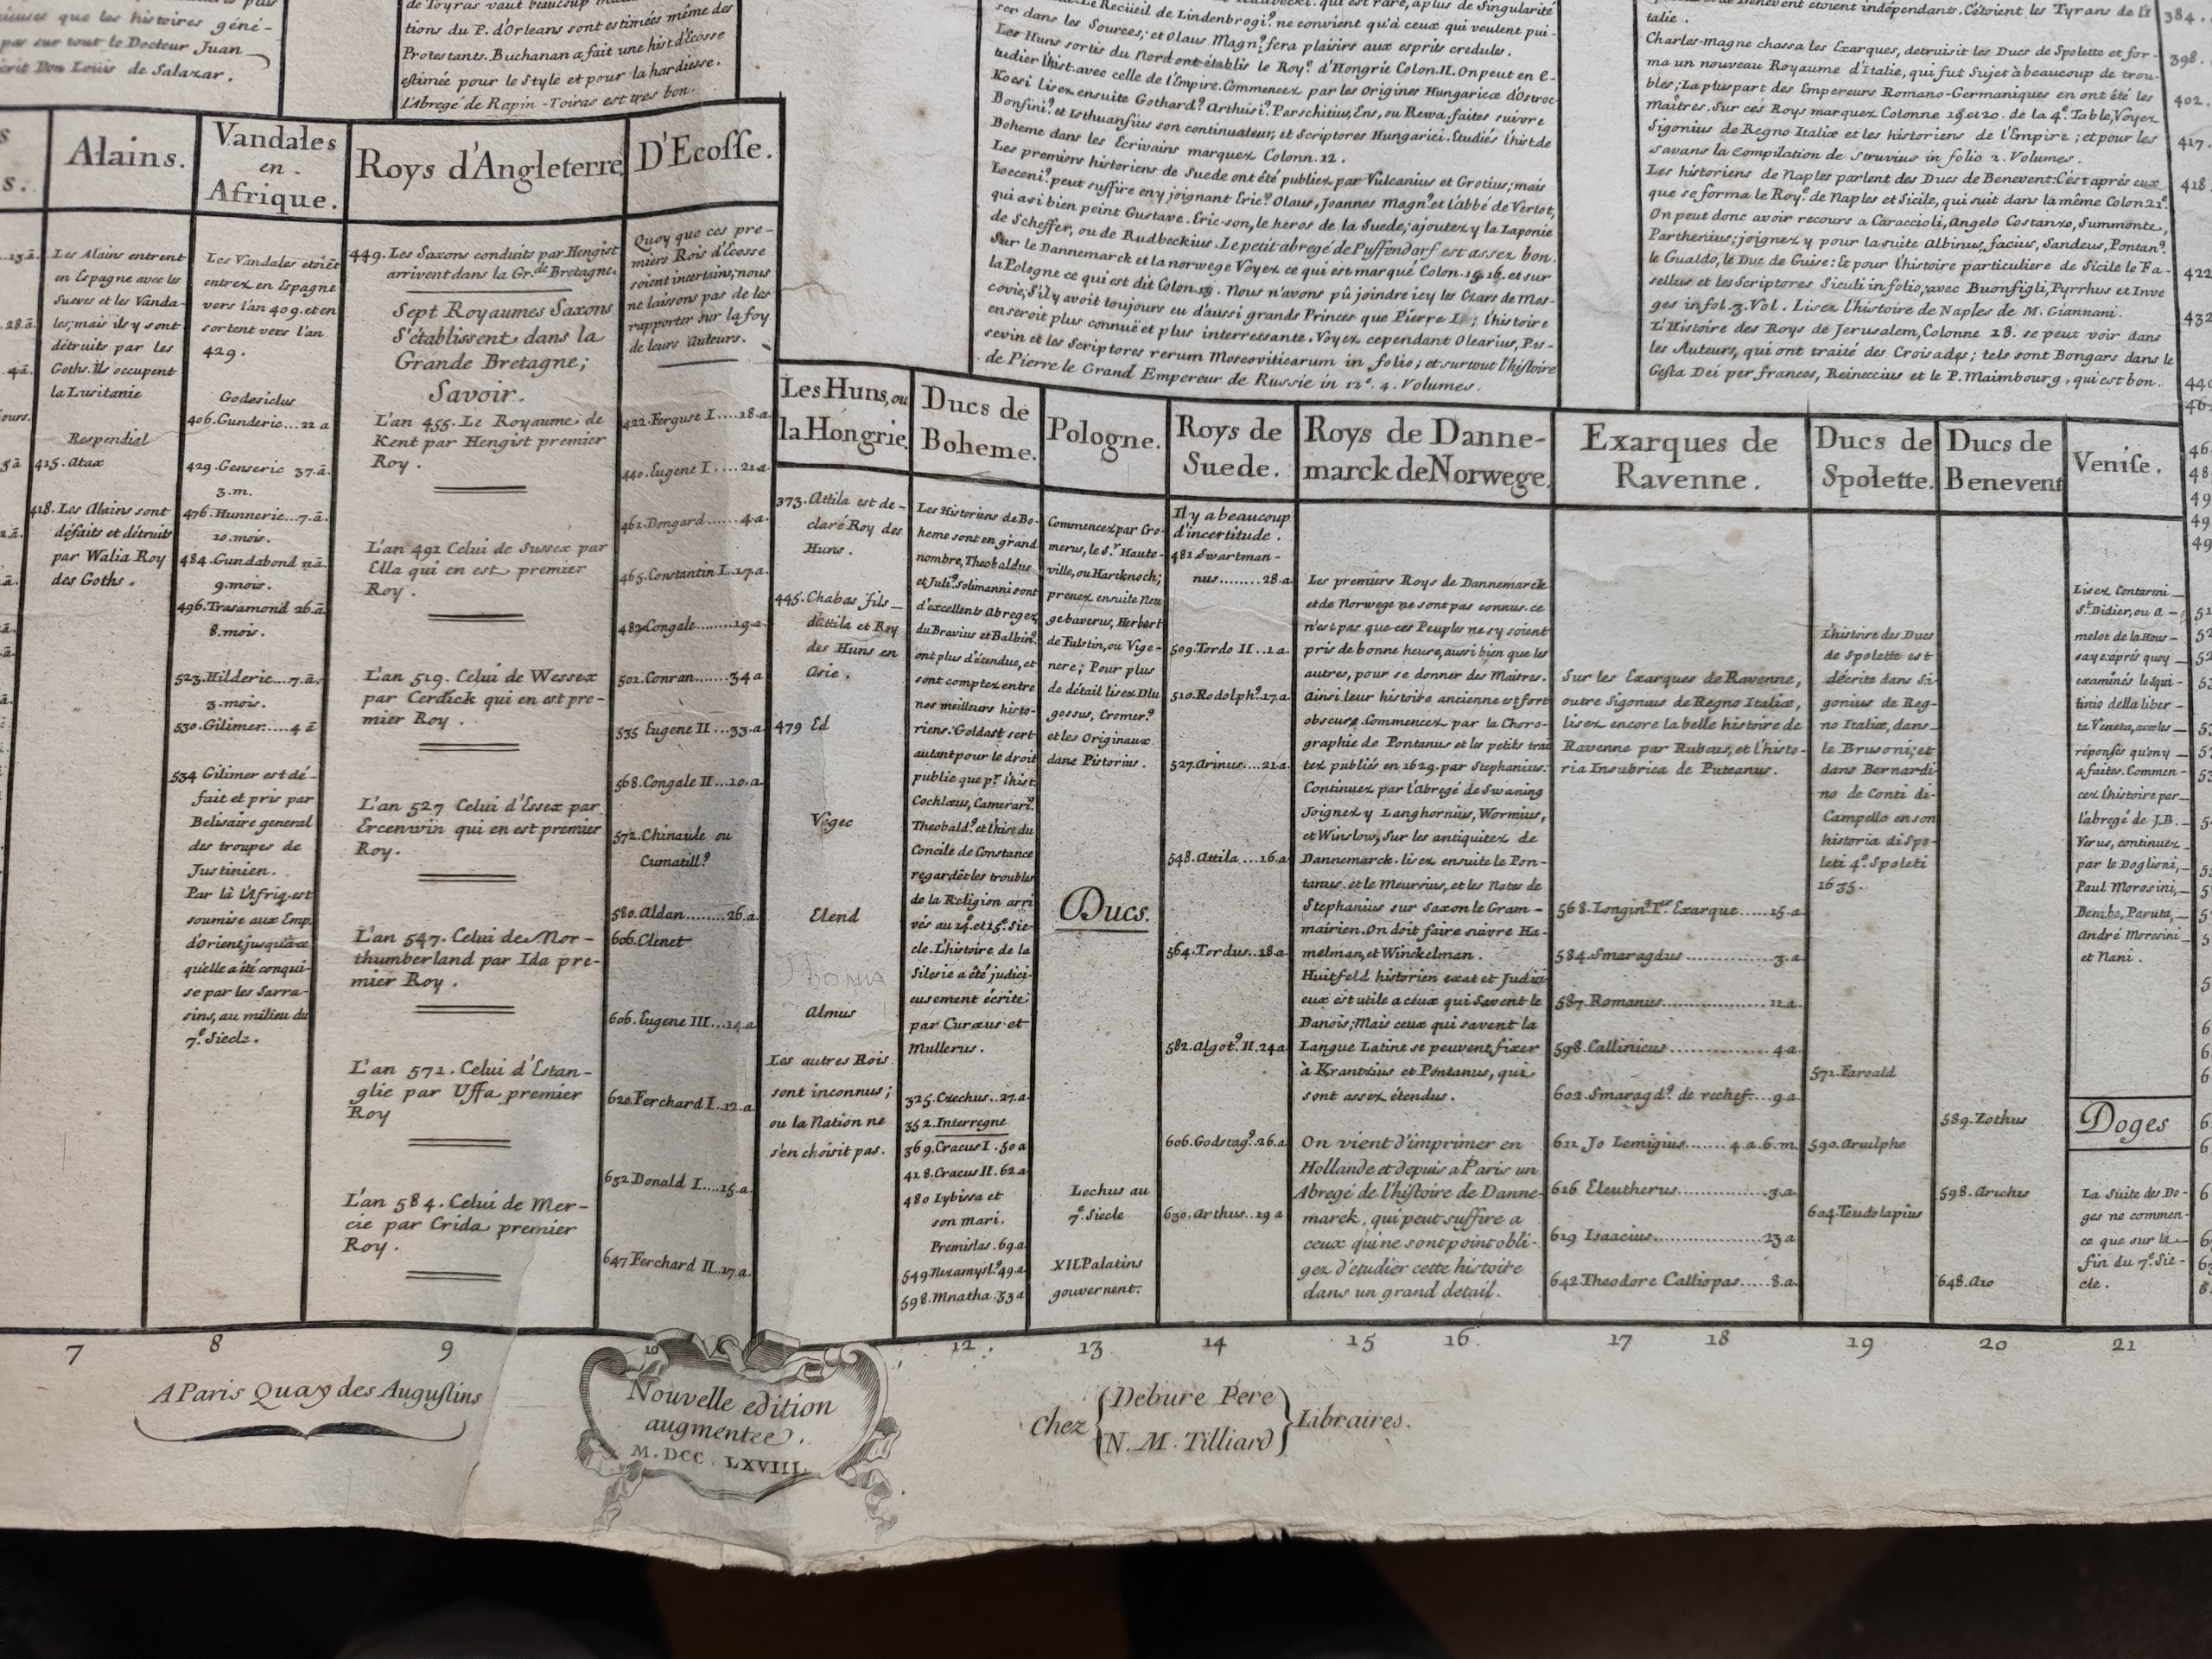 ieuses que les histoires géné-
pas sur tout le Docteur Juan
écrit Don Louis de Salazar.
de Toyras vaut beaucoup
tions du P. d'Orleans sont estimées même des
Protestants. Buchanan a fait une hist. d'Ecosse
estimée pour le Style et pour la hardiesse.
l'Abregé de Rapin-Toiras est tres bon.
Le Recüeil de Lindenbrogi⁹ ne convient qu'à ceux qui veulent pui-
ser dans les Sources; et Olaus Magn⁹ fera plaisirs aux esprits credules.
Les Huns sortis du Nord ont établis le Roy.e d'Hongrie Colon. II. On peut en e-
tudier l'hist. avec celle de l'Empire. Commencez par les Origines Hungaricæ d'Ostroc-
Kocsi lisez ensuite Gothard⁹ Arthusi⁹. Parschitius, Ens, ou Rewa, faites suivre
Bonfini⁹ et Isthuansius son continuateur, et Scriptores Hungarici. Etudiés l'hist. de
Boheme dans les Ecrivains marquez Colonn. 12.
Les premiers historiens de Suede ont été publiez par Vulcanius et Grotius; mais
Locceni⁹ peut suffire en y joignant Eric⁹ Olaus, Joannes Magn⁹ et l'abbé de Vertot,
qui a si bien peint Gustave. Eric-son, le heros de la Suede; ajoutez y la Laponie
de Scheffer, ou de Rudbeckius. Le petit abregé de Puffendorf est assez bon.
Sur le Dannemarck et la norwege Voyez ce qui est marqué Colon. 15. 16. et sur
la Pologne ce qui est dit Colon. 13. Nous n'avons pû joindre icy les Czars de Mos-
covie, S'il y avoit toujours eu d'aussi grands Princes que Pierre I.; l'histoire
en seroit plus connuë et plus interressante. Voyez cependant Olearius, Pos-
sevin et les Scriptores rerum Moscoviticarum in folio; et surtout l'histoire
de Pierre le Grand Empereur de Russie in 12⁰. 4. Volumes.
de Benevent étoient indépendants. C'étoient les Tyrans de l'I
talie.
Charles-magne chassa les Exarques, detruisit les Ducs de Spolette et for-
ma un nouveau Royaume d'Italie, qui fut Sujet à beaucoup de trou-
bles; La pluspart des Empereurs Romano-Germaniques en ont été les
maitres. Sur ces Roys marquez Colonne 19. et 20. de la 4.e Table, Voyez
Sigonius de Regno Italiæ et les historiens de l'Empire; et pour les
savans la Compilation de Struvius in folio 2. Volumes.
Les historiens de Naples parlent des Ducs de Benevent: C'est aprés eux
que se forma le Roy.e de Naples et Sicile, qui suit dans la même Colon 21.e
On peut donc avoir recours a Caraccioli, Angelo Costanzo, Summonte,
Parthenius; joignez y pour la suite Albinus, facius, Sandeus, Pontan⁹
le Gualdo, le Duc de Guise: Et pour l'histoire particuliere de Sicile le Fa-
sellus et les Scriptores Siculi in folio; avec Buonfigli, Pyrrhus et Inve
ges in fol. 3. Vol. Lisez l'histoire de Naples de M. Giannani.
L'Histoire des Roys de Jerusalem, Colonne 18. se peut voir dans
les Auteurs, qui ont traité des Croisades; tels sont Bongars dans le
Gesta Dei per francos, Reineccius et le P. Maimbourg, qui est bon.
384.
398.
402.
417.
418.
422
432
Alains.
Les Alains entrent
en Espagne avec les
Sueves et les Vanda-
les; mais ils y sont
détruits par les
Goths. Ils occupent
la Lusitanie
Respendial
415. Atax
418. Les Alains sont
défaits et détruits
par Walia Roy
des Goths.
Vandales
en
Afrique.
Les Vandales étoiēt
entrez en Espagne
vers l'an 409. et en
sortent vers l'an
429.
Godesiclus
406. Gunderic...22 a
429. Genseric 37. ā.
3. m.
476. Hunneric...7. ā.
10. mois.
484. Gundabond 11 ā.
9. mois.
496. Trasamond 26. ā.
8. mois.
523. Hilderic....7. ā.
3. mois.
530. Gilimer.....4 ā
534 Gilimer est dé-
fait et pris par
Belisaire general
des troupes de
Justinien.
Par là l'Afriq. est
soumise aux Emp.
d'Orient, jusqu'à ce
qu'elle a été conqui-
se par les Sarra-
sins, au milieu du
7.e Siecle.
Roys d'Angleterre
449. Les Saxons conduits par Hengist
arrivent dans la Gr.de Bretagne.
Sept Royaumes Saxons
S'établissent dans la
Grande Bretagne;
Savoir.
L'an 455. Le Royaume de
Kent par Hengist premier
Roy.
L'an 491 Celui de Sussex par
Ella qui en est premier
Roy.
L'an 519. Celui de Wessex
par Cerdick qui en est pre-
mier Roy.
L'an 527 Celui d'Essex par
Ercenwin qui en est premier
Roy.
L'an 547. Celui de Nor-
thumberland par Ida pre-
mier Roy.
L'an 571. Celui d'Estan-
glie par Uffa premier
Roy
L'an 584. Celui de Mer-
cie par Crida premier
Roy.
D'Ecosse.
Quoy que ces pre-
miers Rois d'Ecosse
soient incertains, nous
ne laissons pas de les
rapporter sur la foy
de leurs Auteurs.
422. Ferguse I....18. a
440. Eugene I....21 a
461. Dongard......4. a.
465. Constantin I..17. a.
482 Congale........19. a.
501. Conran.......34 a
535 Eugene II...33. a.
568. Congale II...10. a.
572. Chinaule ou
Cumatill⁹
580. Aldan........26. a.
606. Clenet
606. Eugene III...14. a
620. Ferchard I..12. a.
632 Donald I....15. a.
647 Ferchard II..17. a.
Les Huns, ou
la Hongrie.
373. Attila est de-
claré Roy des
Huns.
445. Chabas fils
d'Attila et Roy
des Huns en
Asie.
479 Ed
Vgec
Elend
Almus
Les autres Rois
sont inconnus;
ou la Nation ne
s'en choisit pas.
Ducs de
Boheme.
Les Historiens de Bo-
heme sont en grand
nombre, Theobaldus
et Juli⁹ Solimanni sont
d'excellents Abregez
du Bravius et Balbin⁹
ont plus d'étendue, et
sont comptez entre
nos meilleurs histo-
riens: Goldast sert
autant pour le droit
public que p.r l'hist.
Cochlæus, Camerari⁹.
Theobald⁹ et l'hist du
Concile de Constance
regardēt les troubles
de la Religion arri
vés au 14.e et 15.e Sie-
cle. L'histoire de la
Silesie a été judici-
eusement écrite
par Curæus et
Mullerus.
325. Czechus..27. a.
352. Interregne
369. Cracus I. 50 a
418. Cracus II. 62. a
480 Lybissa et
son mari.
Premislas. 69. a
549. Nezamysl⁹ 49. a
598. Mnatha. 53 a
Pologne.
Commencez par Cro-
merus, le S.r Haute-
ville, ou Hartknoch;
prenez ensuite Neu
gebaverus, Herbert
de Fulstin, ou Vige-
nere; Pour plus
de détail lisez Dlu
gossus, Cromer⁹
et les Originaux
dans Pistorius.
Ducs.
Lechus au
7.e Siecle
XII. Palatins
gouvernent.
Roys de
Suede.
Il y a beaucoup
d'incertitude.
481 Swartman-
nus........28. a
509. Tordo II..1. a
510. Rodolph⁹.17. a
527. Arinus....21. a
548. Attila....16. a
564. Tordus..18. a
582. Algot⁹ II. 24 a
606. Godstag⁹. 26. a
630. Arthus..19 a
Roys de Danne-
marck de Norwege.
Les premiers Roys de Dannemarck
et de Norwege ne sont pas connus. ce
n'est pas que ces Peuples ne s'y soient
pris de bonne heure, aussi bien que les
autres, pour se donner des Maitres.
Ainsi leur histoire ancienne est fort
obscure. Commencez par la Choro-
graphie de Pontanus et les petits trai
tez publiés en 1629. par Stephanius.
Continuez par l'Abregé de Swaning
Joignez y Langhornius, Wormius,
et Winslow, sur les antiquitez de
Dannemarck. lisez ensuite le Pon-
tanus et le Meursius, et les Notes de
Stephanius sur Saxon le Gram-
mairien. On doit faire suivre Ha-
melman, et Winckelman.
Huitfeld historien exat et Judici
eux est utile a ceux qui Savent le
Danois; Mais ceux qui savent la
Langue Latine se peuvent fixer
à Krantzius et Pontanus, qui
sont assez étendus.
On vient d'imprimer en
Hollande et depuis a Paris un
Abregé de l'histoire de Danne-
marck, qui peut suffire a
ceux qui ne sont point obli-
gez d'étudier cette histoire
dans un grand detail.
Exarques de
Ravenne.
Sur les Exarques de Ravenne,
outre Sigonius de Regno Italiæ,
lisez encore la belle histoire de
Ravenne par Rubeus, et l'histo-
ria Insubrica de Puteanus.
568. Longin⁹ I.er Exarque.....15. a
584. Smaragdus................3. a
587. Romanus..................11 a.
598. Callinicus................4. a
602. Smaragd⁹. de rechef...9. a
611 Jo Lemigius.......4. a. 6. m.
616 Eleutherus...............3. a
619 Isaacius..................23 a
642. Theodore Calliopas.....8. a.
Ducs de
Spolette.
L'histoire des Ducs
de Spolette est
décrite dans Si
gonius de Reg-
no Italiæ, dans
le Brusoni; et
dans Bernardi-
no de Conti di-
Campello en son
historia di Spo-
leti 4.⁰ Spoleti
1635.
571. Faroald
590. Ariulphe
604. Teudolapius
Ducs de
Benevent
589. Zothus
598. Arichis
648. Aio
Venise.
Lisez Contareni
S.t Didier, ou A-
melot de la Hous-
saye aprés quoy
examinés le squi-
tinio della liber-
ta Veneta, avec les
réponses qu'on y
a faites. Commen-
cez l'histoire par
l'abregé de J. B.
Verus, continuez
par le Doglioni,
Paul Morosini,
Bembo, Paruta,
André Morosini
et Nani.
Doges
La Suite des Do-
ges ne commen-
ce que sur la
fin du 7.e Sie-
cle.
7 8 9 10 12 13 14 15 16 17 18 19 20 21
A Paris Quay des Augustins
Nouvelle edition
augmentée.
M. DCC. LXVIII.
Chez {Debure Pere
N. M. Tilliard} Libraires.